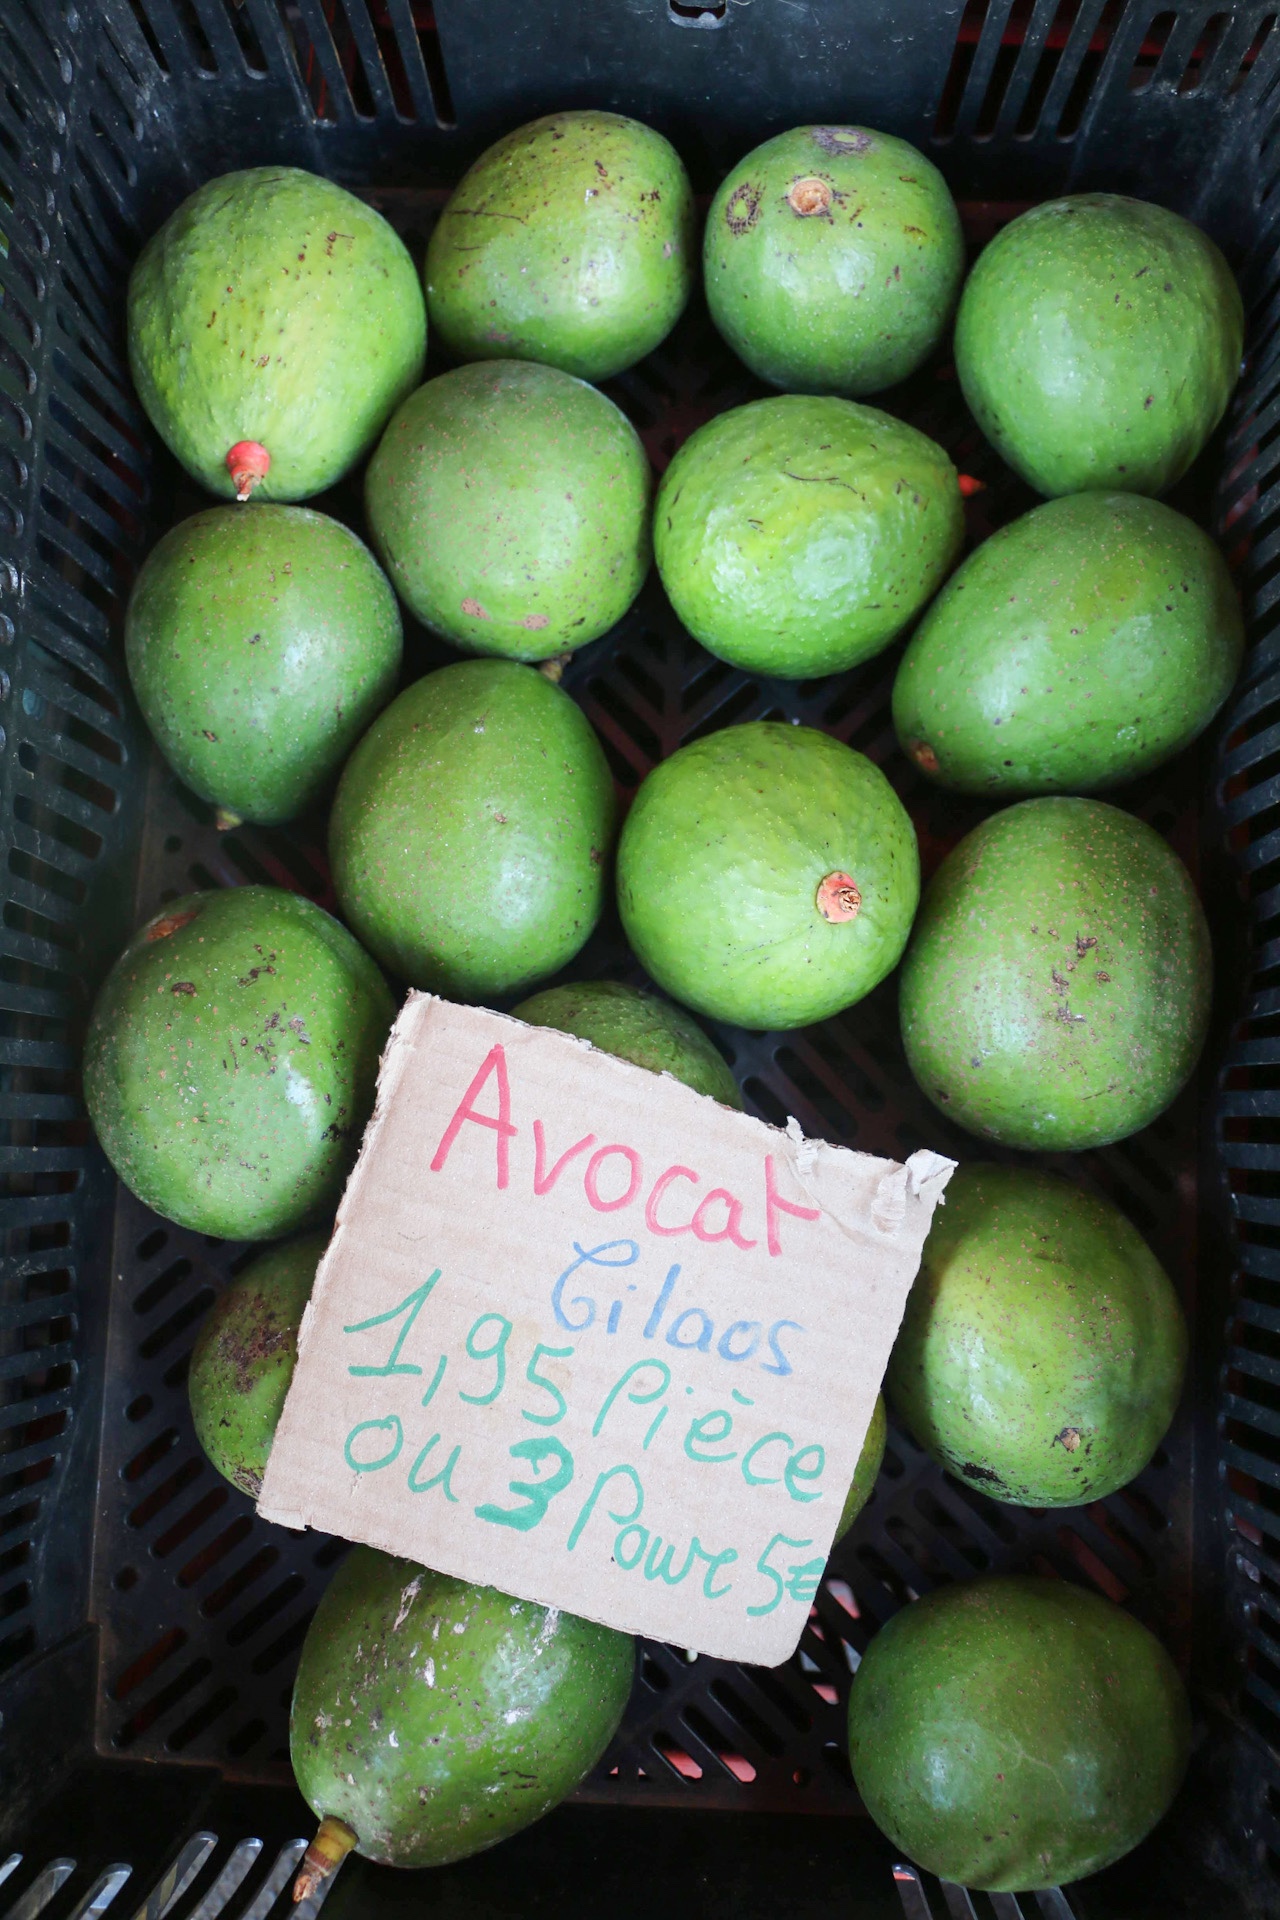 Avocat
Cilaos
1,95 Pièce
ou 3 Pour 5€